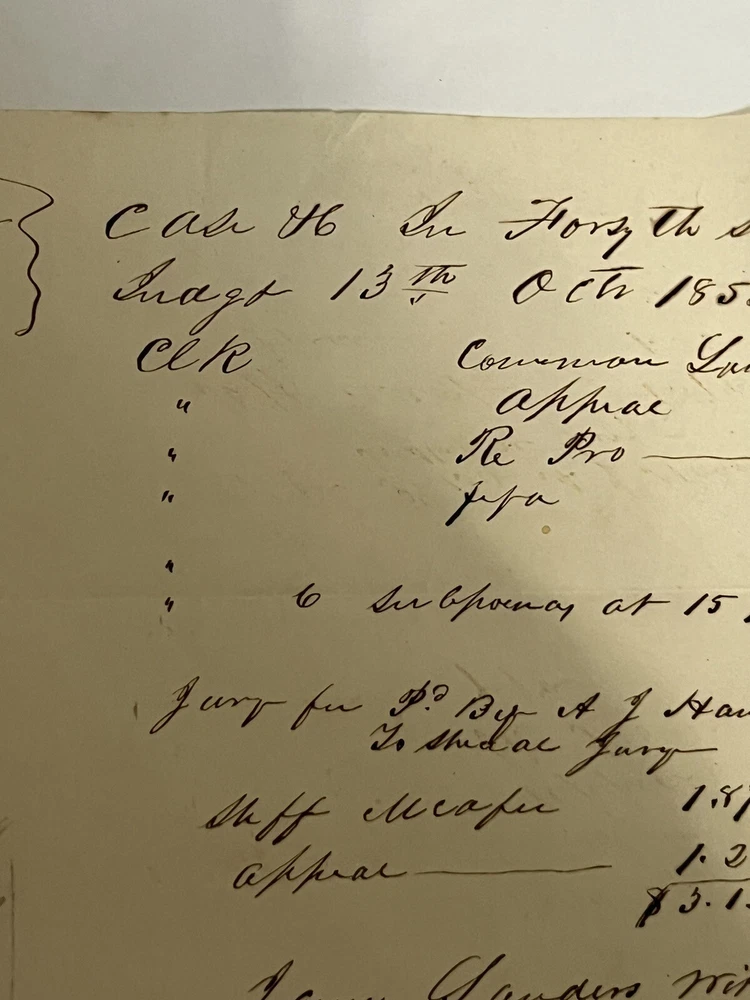 Case 46 In Forsyth s
Judgt 13th Octr 185
Clk Common Law
" Appeal
" Re Pro —
" fifa
"
" 6 subpoenas at 15
Jury fee Pd By A J Han
To special Jury
Shff McAfee 1.8
Appeal — 1.2
$3.1
Sanders wit